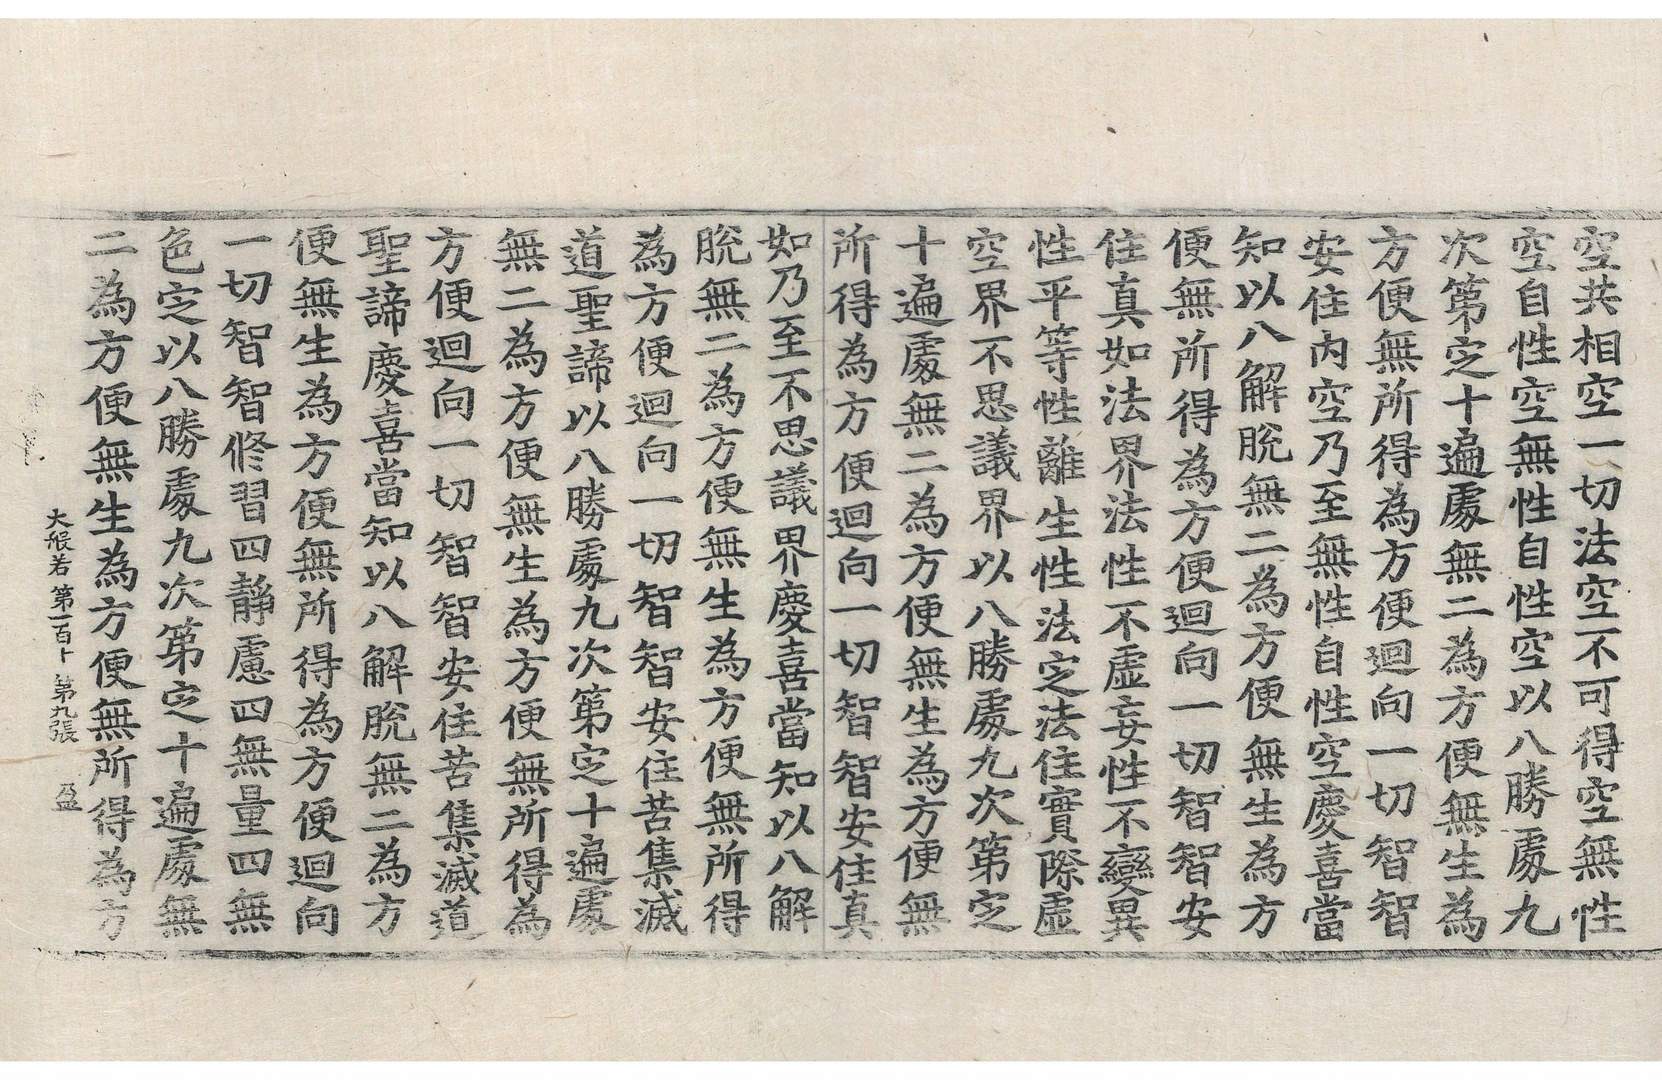 空共相空一切法空不可得空無性
空自性空無性自性空以八勝處九
次第定十遍處無二為方便無生為
方便無所得為方便迴向一切智智
安住內空乃至無性自性空慶喜當
知以八解脫無二為方便無生為方
便無所得為方便迴向一切智智安
住真如法界法性不虛妄性不變異
性平等性離生性法定法住實際虛
空界不思議界以八勝處九次第定
十遍處無二為方便無生為方便無
所得為方便迴向一切智智安住真
如乃至不思議界慶喜當知以八解
脫無二為方便無生為方便無所得
為方便迴向一切智智安住苦集滅
道聖諦以八勝處九次第定十遍處
無二為方便無生為方便無所得為
方便迴向一切智智安住苦集滅道
聖諦慶喜當知以八解脫無二為方
便無生為方便無所得為方便迴向
一切智智修習四靜慮四無量四無
色定以八勝處九次第定十遍處無
二為方便無生為方便無所得為方
大般若 第一百十 第九張 盈